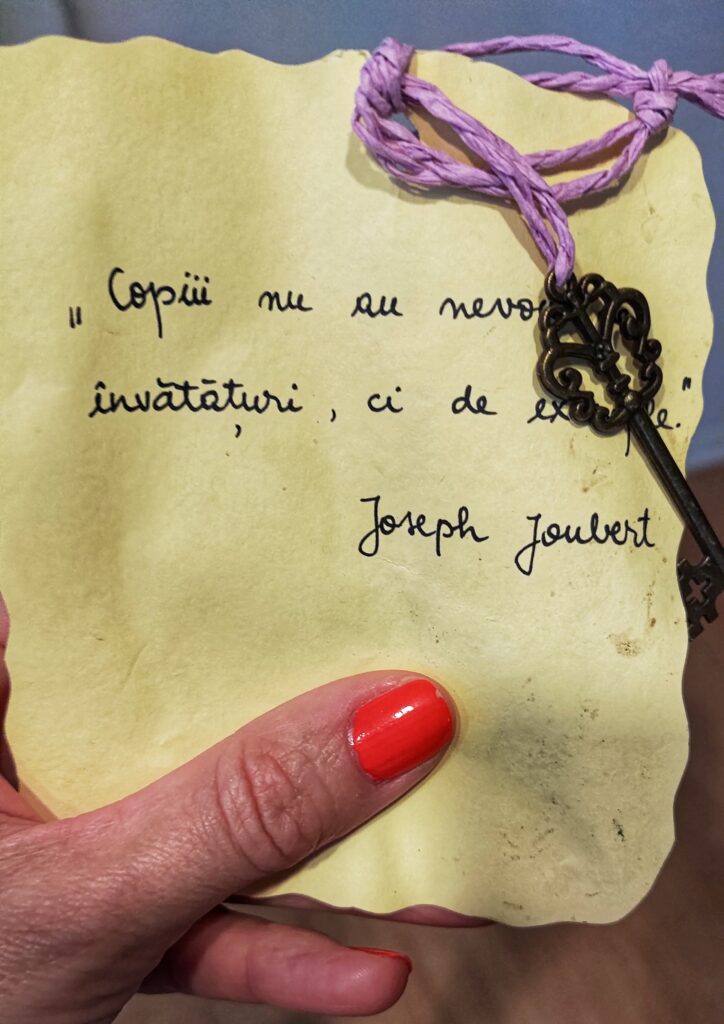 „Copiii nu au nevo
învătățuri, ci de exemple."
Joseph Joubert